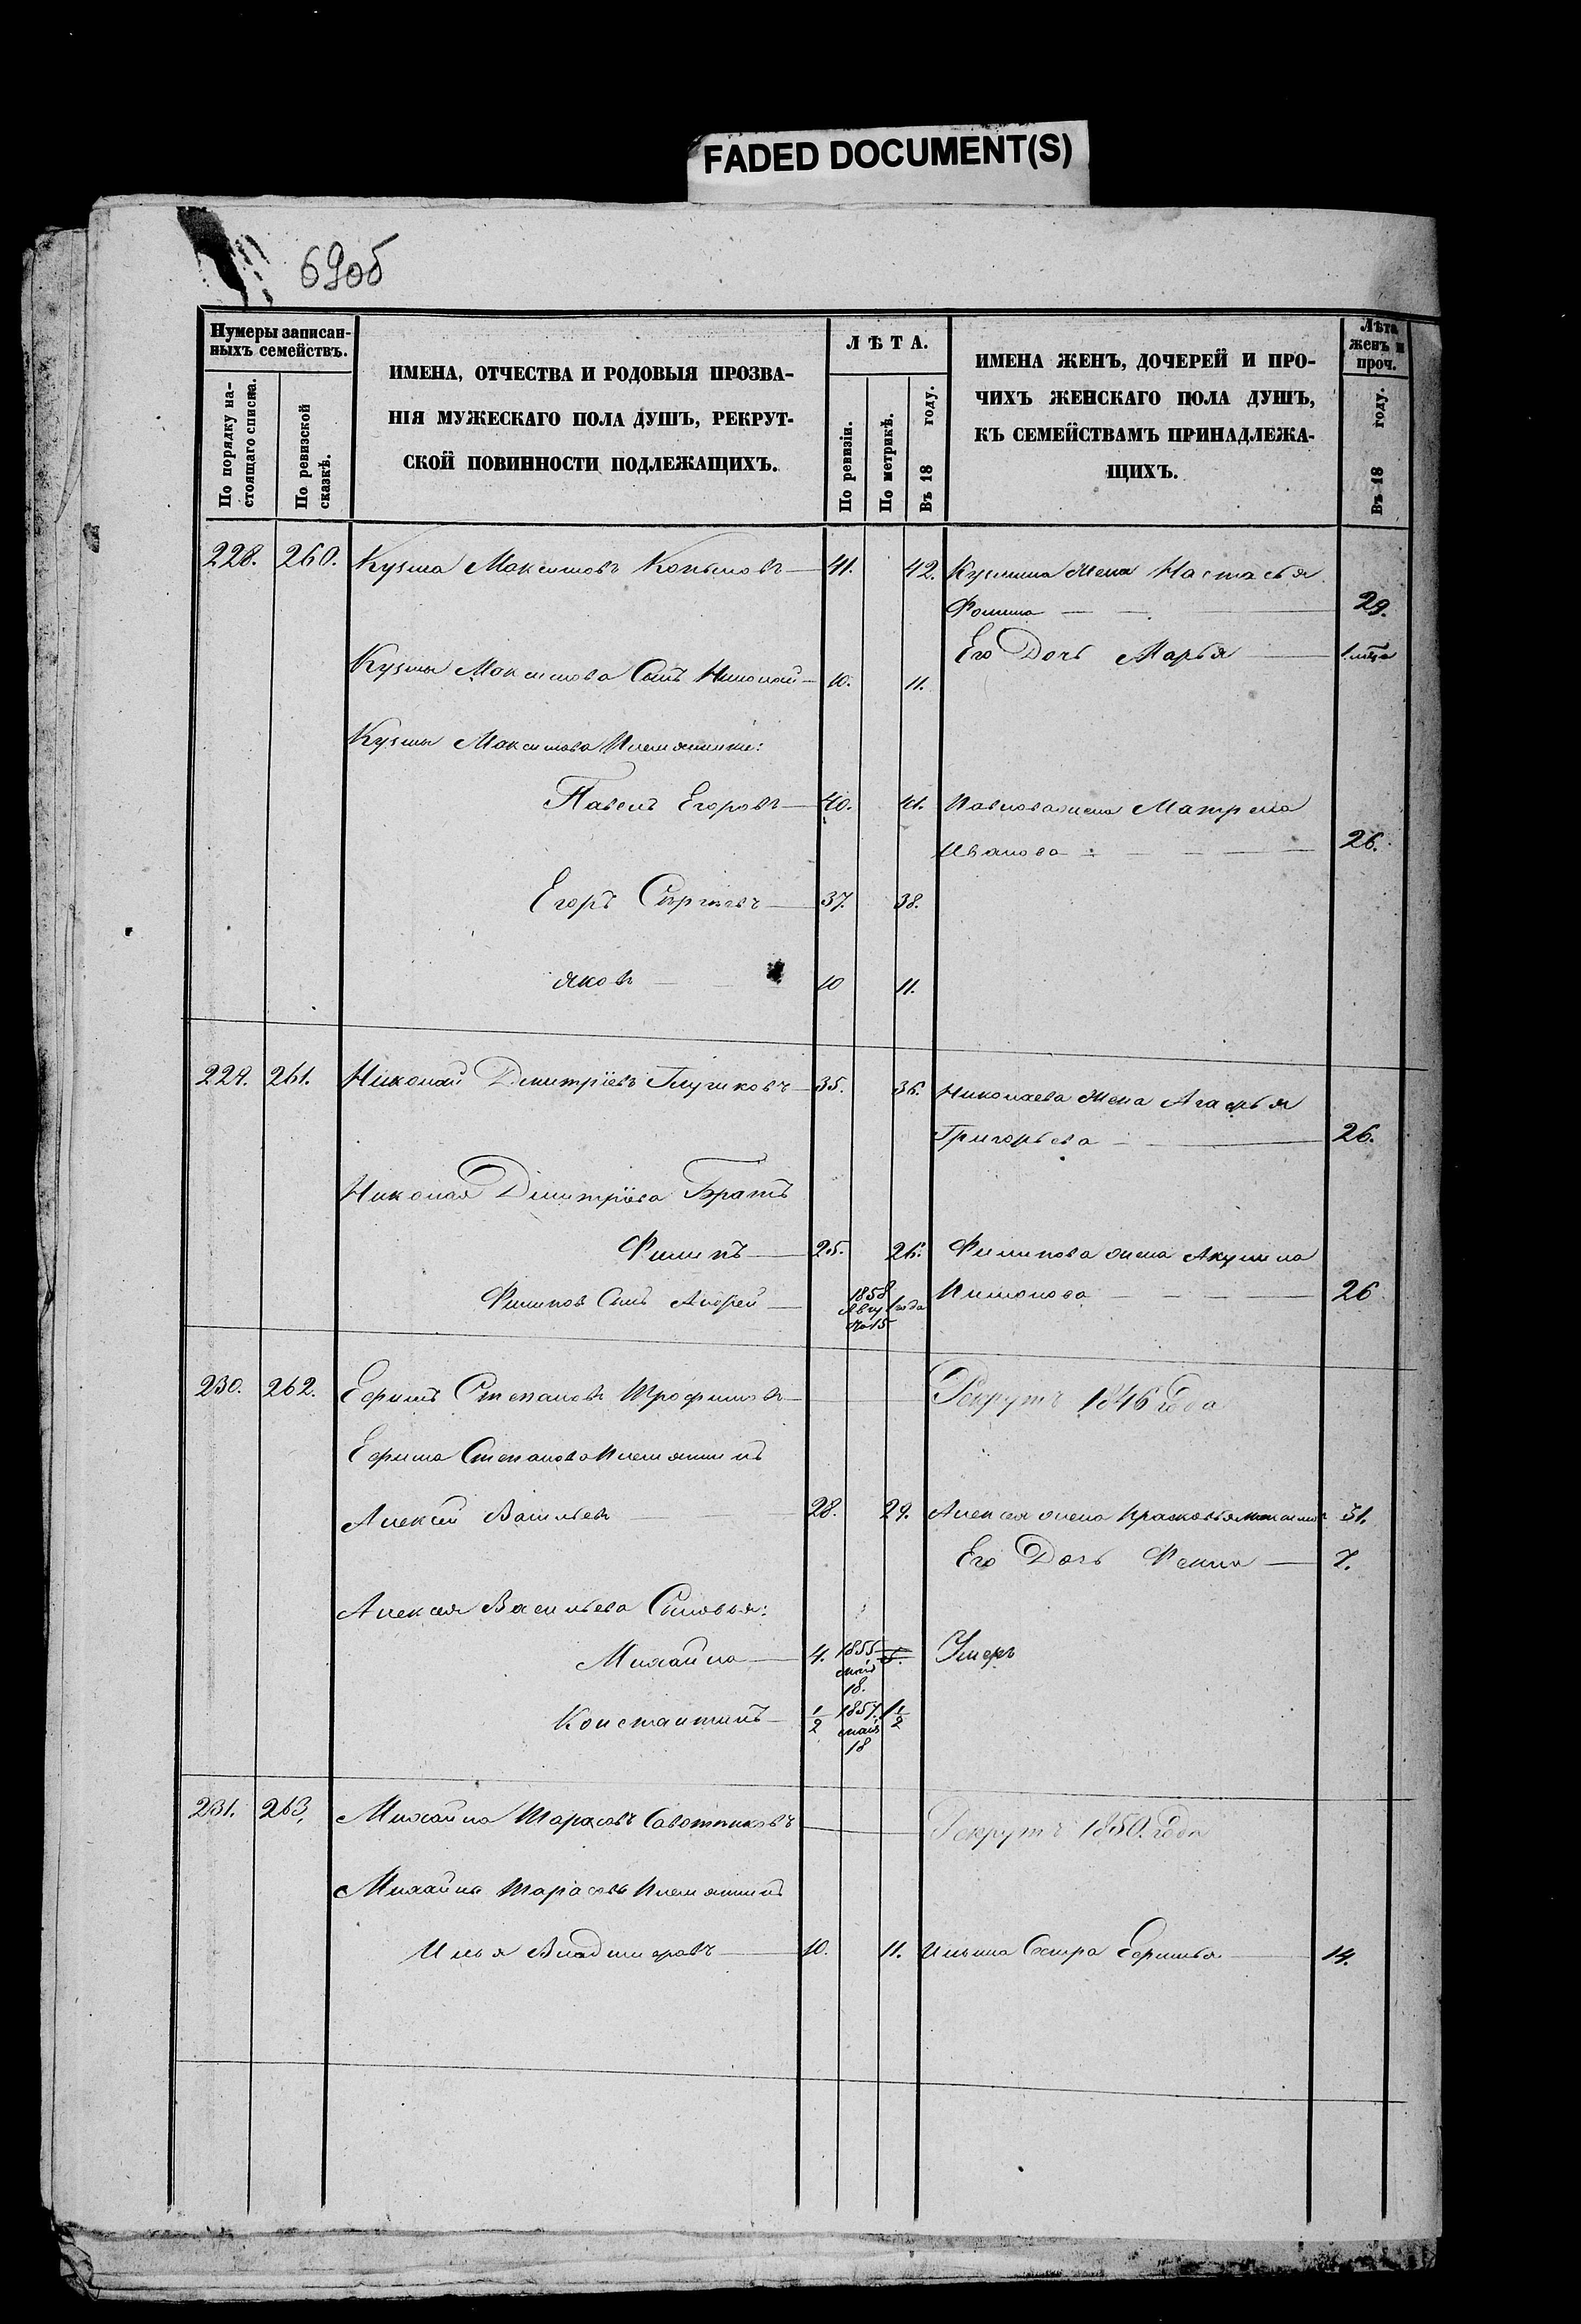 FADED DOCUMENT(S)
69об
Нумеры записан-
ныхъ семействъ.
По порядку на-
стоящаго списка.
По ревизской
сказкѣ.
ИМЕНА, ОТЧЕСТВА И РОДОВЫЯ ПРОЗВА-
НІЯ МУЖЕСКАГО ПОЛА ДУШЪ, РЕКРУТ-
СКОЙ ПОВИННОСТИ ПОДЛЕЖАЩИХЪ.
ЛѢТА.
По ревизіи.
По метрикѣ.
Въ 18 году.
ИМЕНА ЖЕНЪ, ДОЧЕРЕЙ И ПРО-
ЧИХЪ ЖЕНСКАГО ПОЛА ДУШЪ,
КЪ СЕМЕЙСТВАМЪ ПРИНАДЛЕЖА-
ЩИХЪ.
Лѣта
женъ и
проч.
Въ 18 году.
228. 260. Кузма Максимовъ Копыловъ 41. 42. Кузмина жена Настасья
Фомина 29.
Его Дочь Марья
Кузмы Максимова Сынъ Николай 10. 11.
Кузмы Максимова Племянники:
Павелъ Егоровъ 40. 41. Павлова жена Матрена
Иванова 26.
Егоръ Сергѣевъ 37. 38.
Яковъ 10 11.
229. 261. Николай Дмитріевъ 35. 36. Николаева жена Агафья
Григорьева 26.
Николая Дмитріева Братъ
Филипъ 25. 26. Филипова жена Акулина
Филиповъ Сынъ Андрей 1858 Авгу ста 15 1 года 26
230. 262. Ефимъ Степановъ Трофимовъ Рекрутъ 1846 года
Ефима Степанова Племянникъ
Алексей Васильевъ 28. 29. Алексея жена Прасковья 31.
Его Дочь 7.
Алексея Васильева Сыновья:
Михайла 4. 1855 маія 18. 5. Умеръ
Константинъ 1/2 1857. маія 18 1 1/2
231. 263. Михайла Тарасовъ Рекрутъ 1850. года
Михайлы Тарасова Племянникъ
Илья Владимировъ 10. 11. Ильина Сестра Ефимья 14.